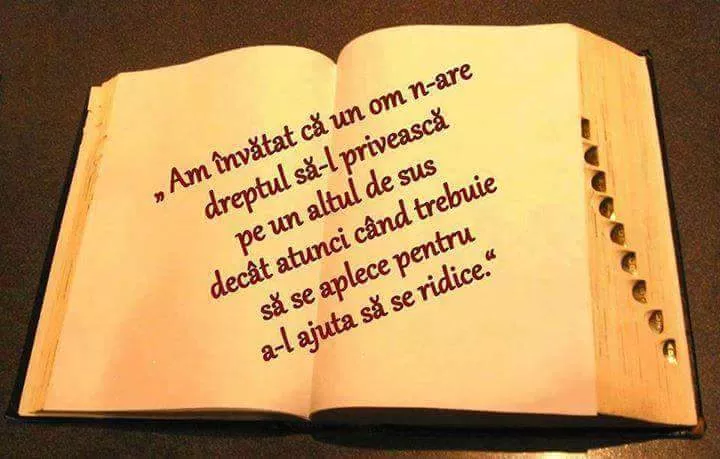 „Am învătat că un om n-are
dreptul să-l privească
pe un altul de sus
decât atunci când trebuie
să se aplece pentru
a-l ajuta să se ridice.“